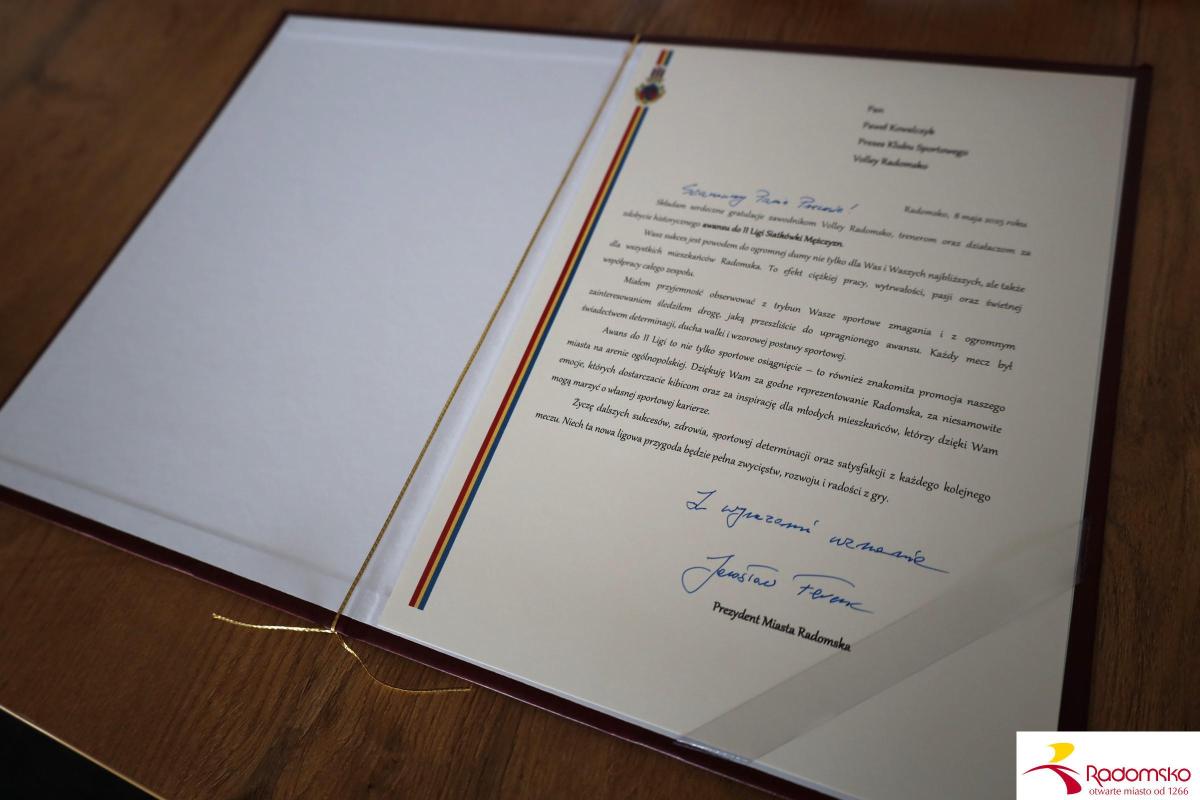 Pan
Paweł Kowalczyk
Prezes Klubu Sportowego
Volley Radomsko
Szanowny Panie Prezesie!
Radomsko, 8 maja 2025 roku
Składam serdeczne gratulacje zawodnikom Volley Radomsko, trenerom oraz działaczom za
zdobycie historycznego awansu do II Ligi Siatkówki Mężczyzn.
Wasz sukces jest powodem do ogromnej dumy nie tylko dla Was i Waszych najbliższych, ale także
dla wszystkich mieszkańców Radomska. To efekt ciężkiej pracy, wytrwałości, pasji oraz świetnej
współpracy całego zespołu.
Miałem przyjemność obserwować z trybun Wasze sportowe zmagania i z ogromnym
zainteresowaniem śledziłem drogę, jaką przeszliście do upragnionego awansu. Każdy mecz był
świadectwem determinacji, ducha walki i wzorowej postawy sportowej.
Awans do II Ligi to nie tylko sportowe osiągnięcie – to również znakomita promocja naszego
miasta na arenie ogólnopolskiej. Dziękuję Wam za godne reprezentowanie Radomska, za niesamowite
emocje, których dostarczacie kibicom oraz za inspirację dla młodych mieszkańców, którzy dzięki Wam
mogą marzyć o własnej sportowej karierze.
Życzę dalszych sukcesów, zdrowia, sportowej determinacji oraz satysfakcji z każdego kolejnego
meczu. Niech ta nowa ligowa przygoda będzie pełna zwycięstw, rozwoju i radości z gry.
Z wyrazami uznania
Jarosław Ferenc
Prezydent Miasta Radomska
Radomsko
otwarte miasto od 1266